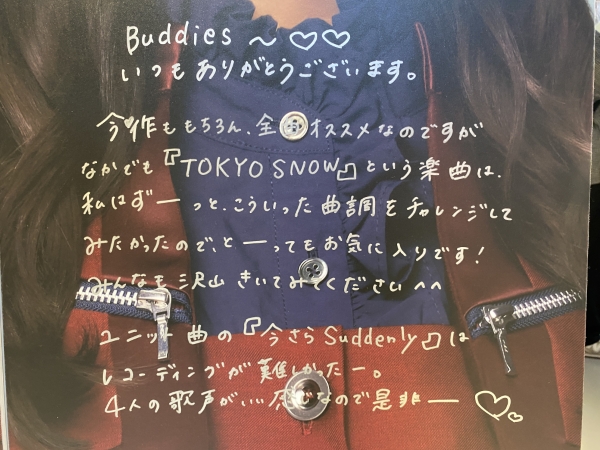 Buddies 〜 ♡♡
いつもありがとうございます。
今作ももちろん、全曲オススメなのですが
なかでも『TOKYO SNOW』という楽曲は、
私はずーっと、こういった曲調をチャレンジして
みたかったので、とーってもお気に入りです!
みんなも沢山きいてみてください^^
ユニット曲の『今さらSuddenly』は
レコーディングが難しかったー。
4人の歌声がいい感じなので是非ー♡